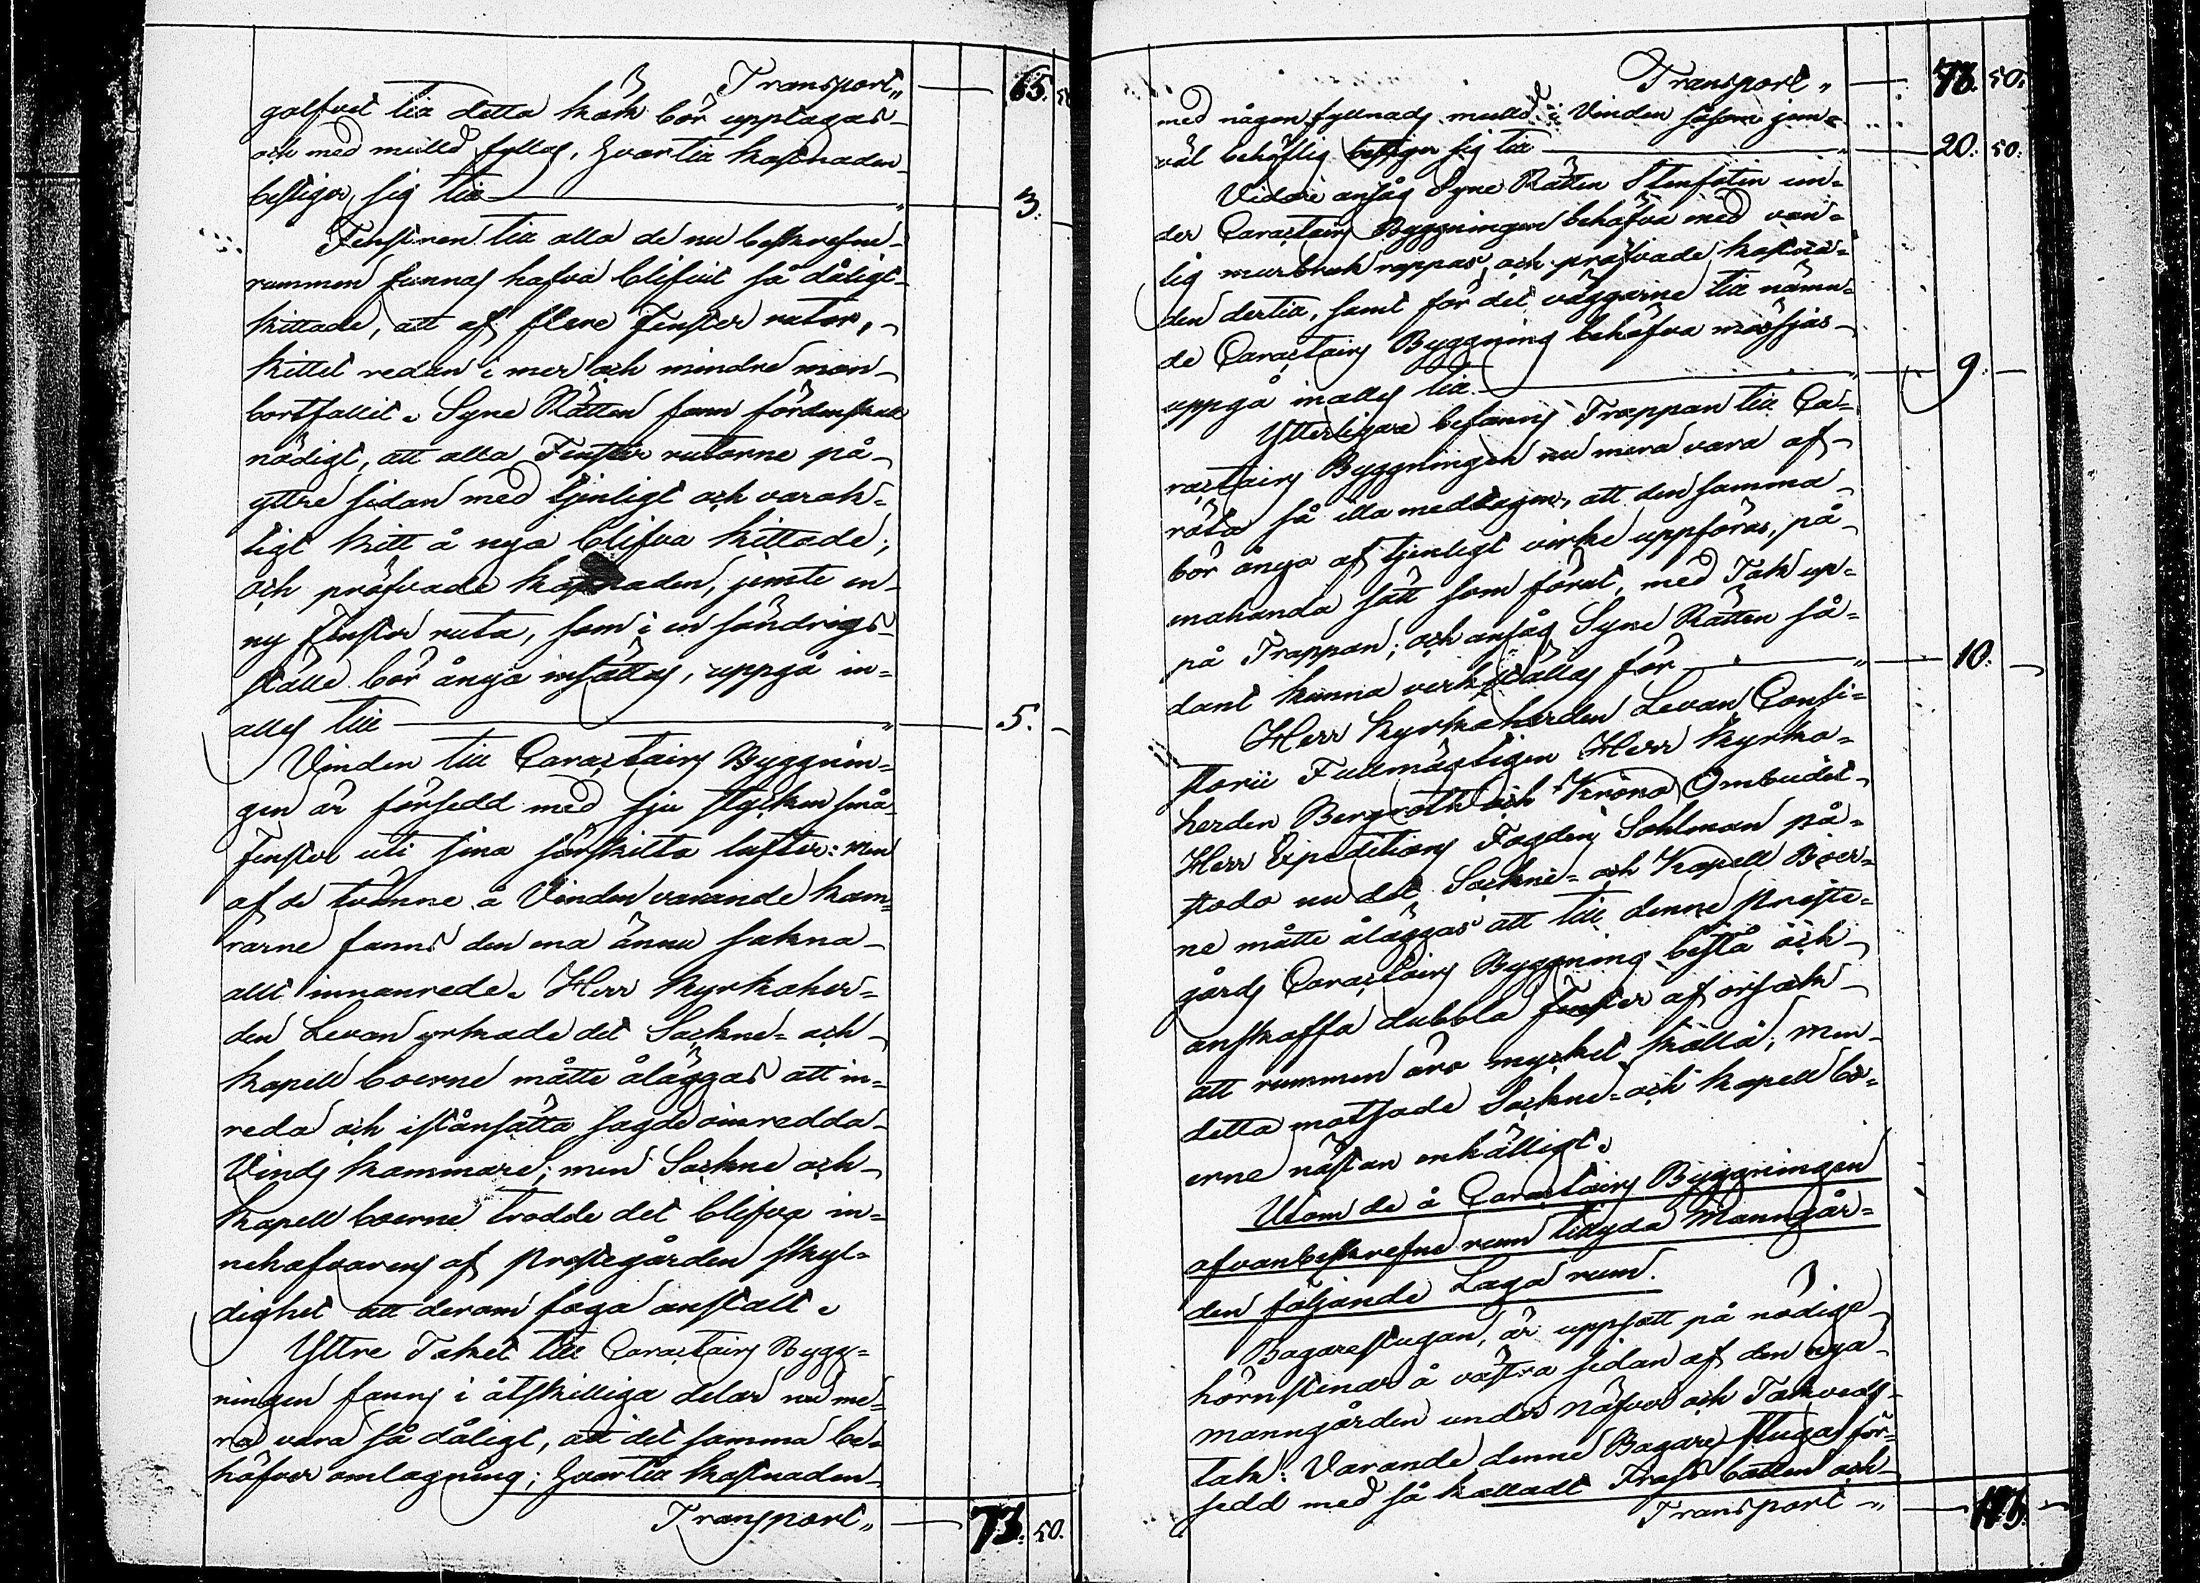 Transport„ — 65. 50
golfvet till detta kök bör upptagas
och med mulld fyllas, hvartill kostnaden
bestiger sig till — „ — 3. —
Fenstren till alla de nu beskrefne
rummen funnos hafva blifvit så dåligt
kittade, att af flere Fenster rutor,
kittet redan i mer och mindre mon
bortfallit. Syne Rätten fann fördenskull
nödigt, att alla Fenster rutorne på
yttre sidan med tjenligt och varak=
tigt kitt å nyo blifva kittade;
och pröfvade kostnaden, jemte en
ny Fenster ruta, som i en söndrigs
ställe bör ånyo insättas, uppgå in=
alles till — „ — 5. —
Vinden till Caractairs Byggnin=
gen är försedd med sju stycken små
Fenster uti sina särskilta lufter: men
af de tvänne å Vinden varande kam=
rarne fanns den ena ännu sakna
allt innanrede. Herr Kyrkoher=
den Levan yrkade det Sockne= och
Kapell boerne måtte åläggas att in=
reda och iståndsätta sagde oinredda
Vinds kammare; men Sockne och
Kapell boerne trodde det blifva in=
nehafvarens af Prestegården skyl=
dighet att derom foga anstalt.
Yttre Taket till Caractairs Bygg=
ningen fanns i åtskilliga delar nu me=
ra vara så dåligt, att det samma be=
höfver omlagning; hvartill kostnaden
Transport„ — 73. 50.
Transport„ — 73. 50.
med någon fyllnads mulld å Vinden såsom jem=
väl behöflig bestiger sig till — „ — 20. 50.
Vidare ansåg Syne Rätten Stenfoten un=
der Caractairs Byggningen behöfva med van=
lig murbruk rappas, och pröfvade kostna=
den dertill, samt för det väggarne till nämn=
de Caractairs Byggning behöfva mossjas
uppgå inalles till — „ — 9. —
Ytterligare befanns Trappan till Ca=
ractairs Byggningen nu mera vara af
röta så illa medtagen, att den samma
bör ånyo af tjenligt virke uppföras, på
enahanda sätt som förut, med Tak up=
på Trappan; och ansåg Syne Rätten så=
dant kunna verkställas för — „ — 10. —
Herr Kyrkoherden Levan Consi=
storii Fullmägtigen Herr Kyrko=
herden Bergroth och Krono Ombudet
Herr Expeditions Fogden Sohlman på=
stodo nu det Sockne= och Kapell Boer=
ne måtte åläggas att till denne Preste=
gårds Caractairs Byggning bestå och
anskaffa dubbla Fenster af orsak
att rummen äro mycket kalla; Men
detta motsade Sockne= och Kapell bo=
erne nästan enhälligt.
Utom de å Caractairs Byggningen
ofvanbeskrefne rum tillyda Manngår=
den följande Laga rum.
Bagarestugan, är uppsatt på nödige
hörnstenar å västra sidan af den nya
manngården under Näfver och Takveds
tak: Varande denne Bagare stuga för=
sedd med så kalladt Trass botten och
Transport„ — 113. —